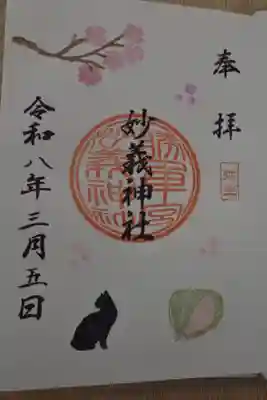 奉拝
妙義神社
令和八年三月五日